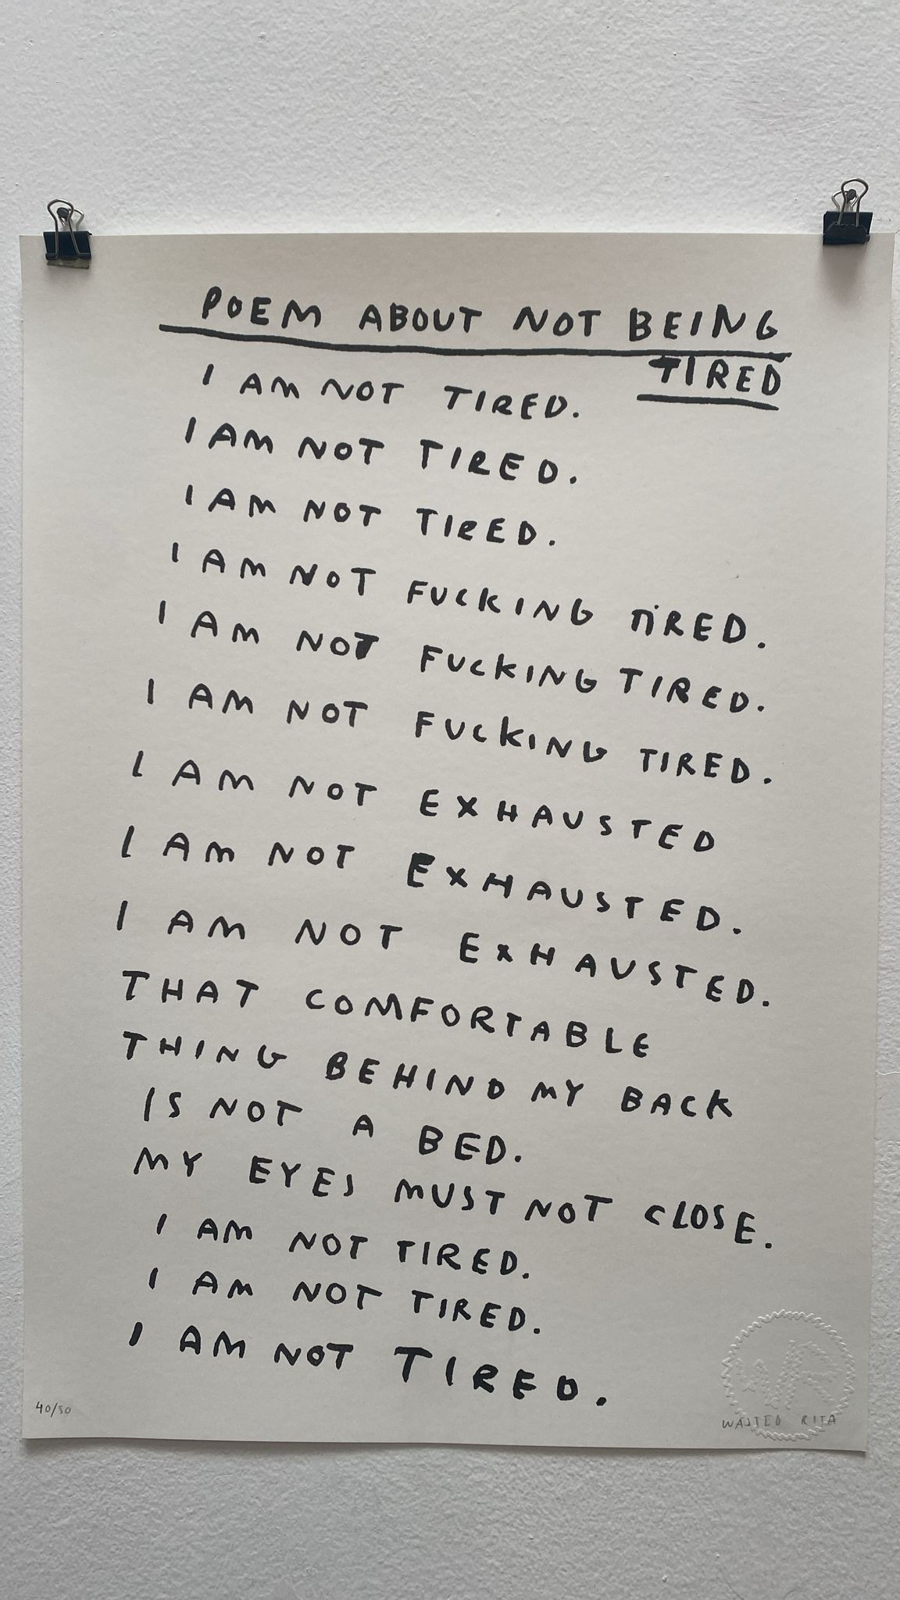 POEM ABOUT NOT BEING
TIRED
I AM NOT TIRED.
I AM NOT TIRED.
I AM NOT TIRED.
I AM NOT FUCKING TIRED.
I AM NOT FUCKING TIRED.
I AM NOT FUCKING TIRED.
I AM NOT EXHAUSTED
I AM NOT EXHAUSTED.
I AM NOT EXHAUSTED.
THAT COMFORTABLE
THING BEHIND MY BACK
IS NOT A BED.
MY EYES MUST NOT CLOSE.
I AM NOT TIRED.
I AM NOT TIRED.
I AM NOT TIRED.
40/50
WASTED RITA